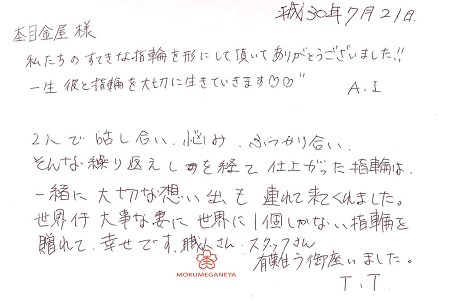 平成30年7月21日.
杢目金屋 様
私たちの すてきな指輪を形にして頂いてありがとうございました!!
一生 彼と指輪を大切に生きていきます♡♡"
A.I
2人で話し合い、悩み、ぶつかり合い、
そんな繰り返しを経て仕上がった指輪は、
一緒に大切な想い出も連れて来てくれました。
世界行 大事な妻に世界に1個しかない指輪を
贈れて、幸せです。職人さん、スタッフさん
有難う御座いました。
T.T
MOKUMEGANEYA